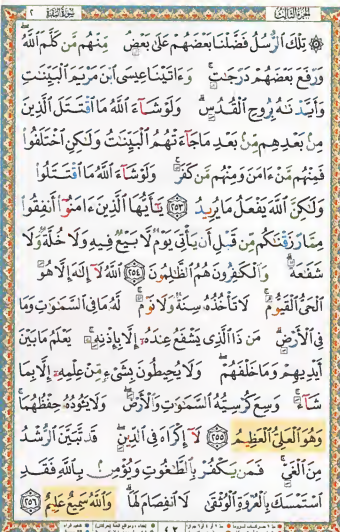 الجزء الثالث
سورة البقرة ٢
۞ تِلْكَ ٱلرُّسُلُ فَضَّلْنَا بَعْضَهُمْ عَلَىٰ بَعْضٍۘ مِّنْهُم مَّن كَلَّمَ ٱللَّهُۖ
وَرَفَعَ بَعْضَهُمْ دَرَجَٰتٍۚ وَءَاتَيْنَا عِيسَى ٱبْنَ مَرْيَمَ ٱلْبَيِّنَٰتِ
وَأَيَّدْنَٰهُ بِرُوحِ ٱلْقُدُسِۗ وَلَوْ شَآءَ ٱللَّهُ مَا ٱقْتَتَلَ ٱلَّذِينَ
مِنۢ بَعْدِهِم مِّنۢ بَعْدِ مَا جَآءَتْهُمُ ٱلْبَيِّنَٰتُ وَلَٰكِنِ ٱخْتَلَفُوا۟
فَمِنْهُم مَّنْ ءَامَنَ وَمِنْهُم مَّن كَفَرَۚ وَلَوْ شَآءَ ٱللَّهُ مَا ٱقْتَتَلُوا۟
وَلَٰكِنَّ ٱللَّهَ يَفْعَلُ مَا يُرِيدُ ٢٥٣ يَٰٓأَيُّهَا ٱلَّذِينَ ءَامَنُوٓا۟ أَنفِقُوا۟
مِمَّا رَزَقْنَٰكُم مِّن قَبْلِ أَن يَأْتِىَ يَوْمٌ لَّا بَيْعٌ فِيهِ وَلَا خُلَّةٌ وَلَا
شَفَٰعَةٌۗ وَٱلْكَٰفِرُونَ هُمُ ٱلظَّٰلِمُونَ ٢٥٤ ٱللَّهُ لَآ إِلَٰهَ إِلَّا هُوَ
ٱلْحَىُّ ٱلْقَيُّومُۚ لَا تَأْخُذُهُۥ سِنَةٌ وَلَا نَوْمٌۚ لَّهُۥ مَا فِى ٱلسَّمَٰوَٰتِ وَمَا
فِى ٱلْأَرْضِۗ مَن ذَا ٱلَّذِى يَشْفَعُ عِندَهُۥٓ إِلَّا بِإِذْنِهِۦۚ يَعْلَمُ مَا بَيْنَ
أَيْدِيهِمْ وَمَا خَلْفَهُمْۖ وَلَا يُحِيطُونَ بِشَىْءٍ مِّنْ عِلْمِهِۦٓ إِلَّا بِمَا
شَآءَۚ وَسِعَ كُرْسِيُّهُ ٱلسَّمَٰوَٰتِ وَٱلْأَرْضَۖ وَلَا يَـُٔودُهُۥ حِفْظُهُمَاۚ
وَهُوَ ٱلْعَلِىُّ ٱلْعَظِيمُ ٢٥٥ لَآ إِكْرَاهَ فِى ٱلدِّينِۖ قَد تَّبَيَّنَ ٱلرُّشْدُ
مِنَ ٱلْغَىِّۚ فَمَن يَكْفُرْ بِٱلطَّٰغُوتِ وَيُؤْمِنۢ بِٱللَّهِ فَقَدِ
ٱسْتَمْسَكَ بِٱلْعُرْوَةِ ٱلْوُثْقَىٰ لَا ٱنفِصَامَ لَهَاۗ وَٱللَّهُ سَمِيعٌ عَلِيمٌ ٢٥٦
٤٢